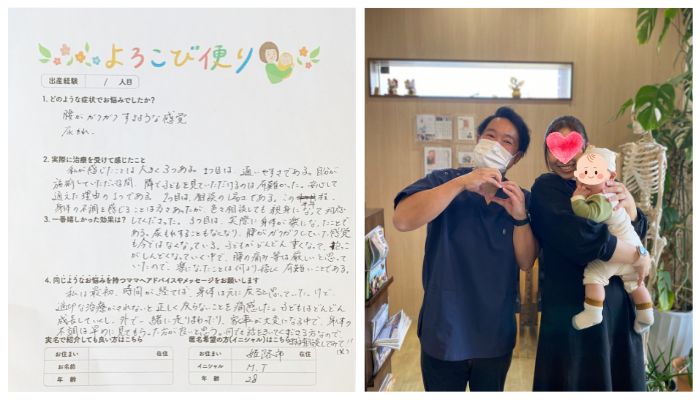 よろこび便り
出産経験 1 人目
1. どのような症状でお悩みでしたか?
腰がガクガクするような感覚
尿もれ.
2. 実際に治療を受けて感じたこと
私が感じたことは大きく3つある。1つ目は、通いやすさである。自分が
施術していただいている間、隣で子どもを見ていただけるのは有難かった。安心して
通えた理由の1つである。2つ目は、相談のしやすさである。この
身体の不調を感じることは多々あったが、色々相談しても親身になって対応
3. 一番嬉しかった効果は?
してくださった。3つ目は、実際に身体が楽になったことで
ある。尿もれすることもなくなり、腰がガクガクしていた感覚
も今ではなくなっている。子どもがどんどん重くなって、抱っこ
がしんどくなっていく中で、腰の痛み等は厳しいと思って
いたので、楽になったことは何より嬉しく有難いことである。
4. 同じようなお悩みを持つママへアドバイスやメッセージをお願いします
私は最初、時間が経てば、身体は元に戻ると思っていたけど、
適切な治療がされないと正しく戻らないことを痛感した。子どもはどんどん
成長していくし、外で一緒に走りまわったり、家事が大変になる中で、身体の
不調は早めに見てもらった方が良いと思う。何でも話をきいてくださる方なので
ぜひ相談してみて!!
実名で紹介しても良い方はこちら
匿名希望の方(イニシャル)はこちら
お住まい 在住
お住まい 姫路市 在住
お名前
イニシャル M.T
年齢
年齢 28